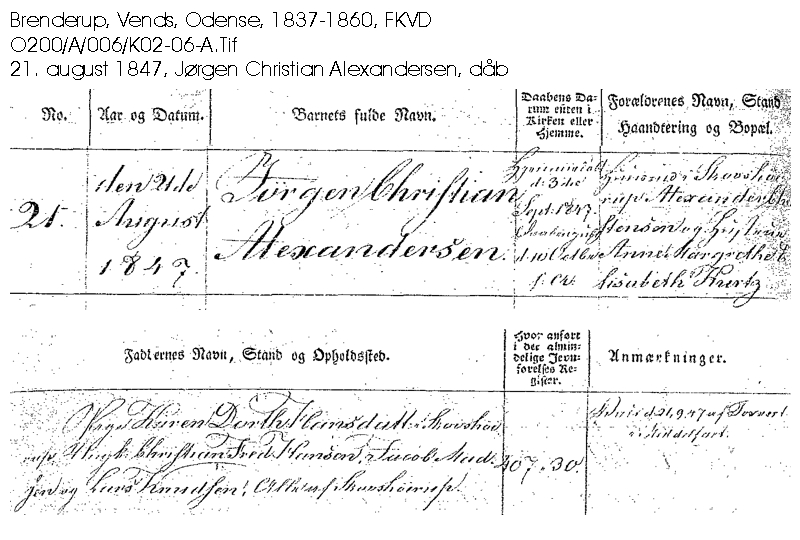 Brenderup, Vends, Odense, 1837-1860, FKVD
O200/A/006/K02-06-A.Tif
21. august 1847, Jørgen Christian Alexandersen, dåb
No.
Aar og Datum.
Barnets fulde Navn.
Daabens Da-
tum enten i
Kirken eller
Hjemme.
Forældrenes Navn, Stand
Haandtering og Bopæl.
21.
den 21de
August
1847.
Jørgen Christian
Alexandersen.
d: 3die
Sept. 1847.
f: Aar
Huusmd i Skovshø-
rup Alexander Chr
stensen og Hustrue
Anne Margrethe E
lisabeth Kurtz
Fadderes Navn, Stand og Opholdssted.
Hvor anført
i det almin-
delige Jevn-
førelses Re-
gister.
Anmærkninger.
Pige Karen Dorth. Hansdatt. i Skovshø
rup. Ungk. Christian Fred. Hansen, Jacob Mad-
sen og Lars Knudsen, Alle af Skovshøirup.
407. 30.
d. 21.9.47 af
i Middelfart.